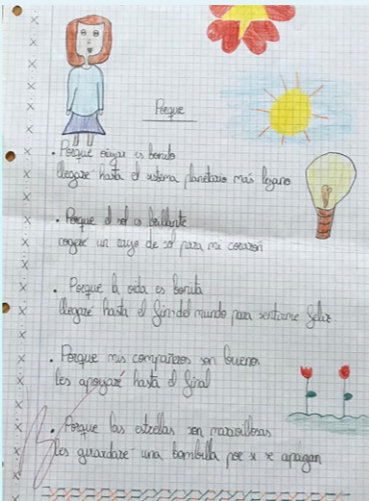 Porque
. Porque viajar es bonito
llegaré hasta el sistema planetario más lejano
. Porque el sol es brillante
cogeré un rayo de sol para mi corazón
. Porque la vida es bonita
llegaré hasta el fin del mundo para sentirme feliz
. Porque mis compañeros son buenos
les apoyaré hasta el final
. Porque las estrellas son maravillosas
les guardaré una bombilla por si se apagan